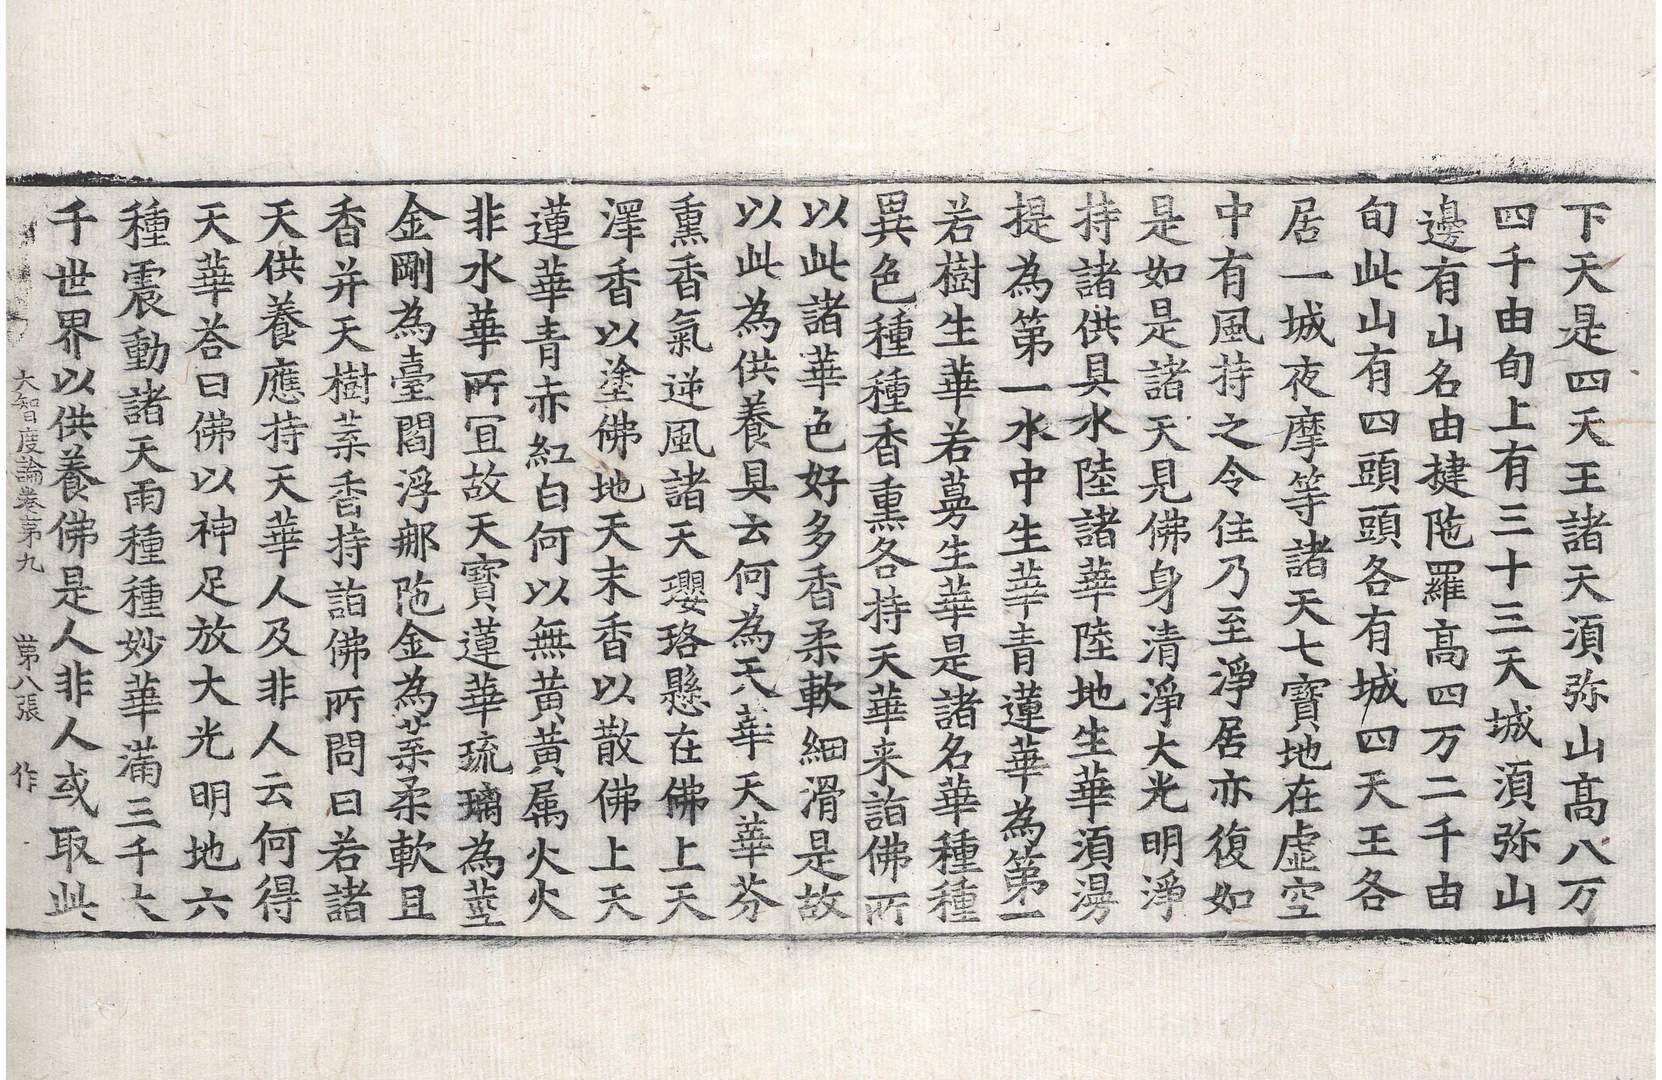 下天是四天王諸天湏弥山高八万
四千由旬上有三十三天城湏弥山
邊有山名由揵陁羅高四万二千由
旬此山有四頭頭各有城四天王各
居一城夜摩等諸天七寶地在虛空
中有風持之令住乃至淨居亦復如
是如是諸天見佛身清淨大光明淨
持諸供具水陸諸華陸地生華湏湯
提為第一水中生華青蓮華為第一
若樹生華若蔓生華是諸名華種種
異色種種香熏各持天華来詣佛所
以此諸華色好多香柔軟細滑是故
以此為供養具云何為天華天華芬
熏香氣逆風諸天瓔珞懸在佛上天
澤香以塗佛地天末香以散佛上天
蓮華青赤紅白何以無黃黃屬火火
非水華所冝故天寶蓮華琉璃為莖
金剛為臺閻浮那陁金為葉柔軟且
香并天樹葉香持詣佛所問曰若諸
天供養應持天華人及非人云何得
天華荅曰佛以神足放大光明地六
種震動諸天雨種種妙華滿三千大
千世界以供養佛是人非人或取此
大智度論卷第九　第八張　作